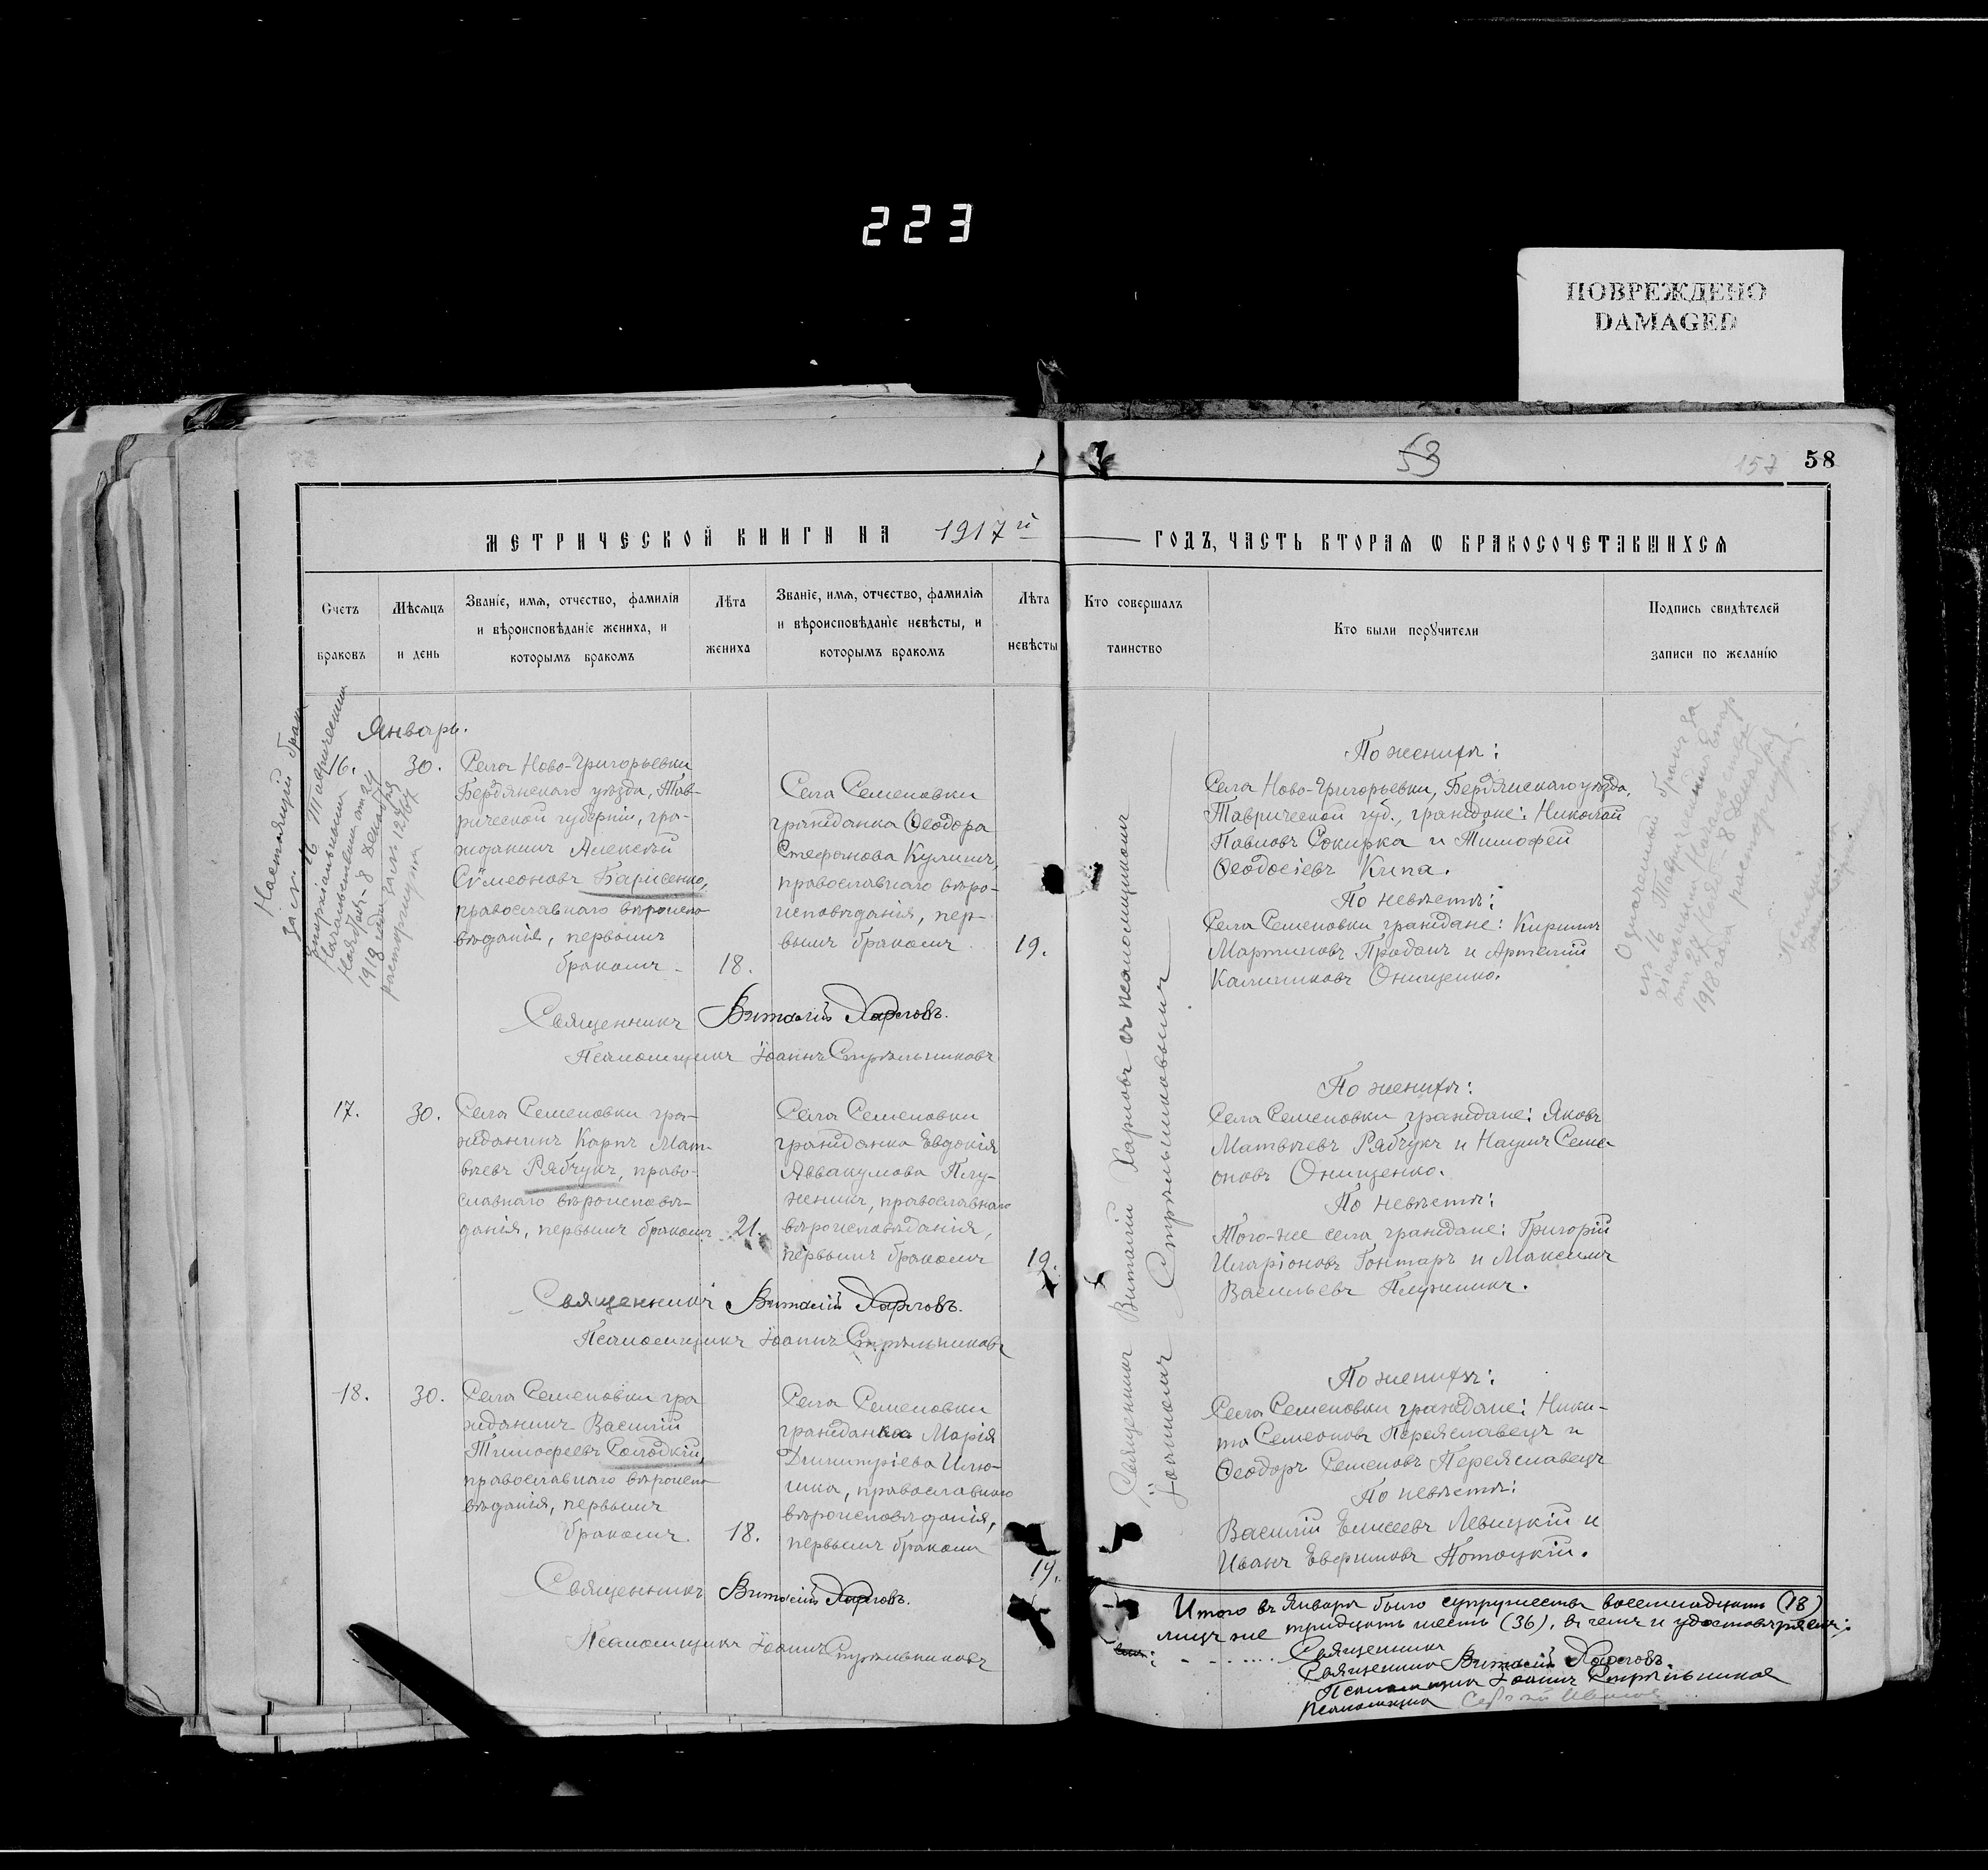 223
ПОВРЕЖДЕНО
DAMAGED
53
157
58
МЕТРИЧЕСКОЙ КНИГИ НА 1917й
ГОДЪ, ЧАСТЬ ВТОРАЯ Ѡ БРАКОСОЧЕТАВШИХСЯ
Счетъ
браковъ
Мѣсяцъ
и день
Званіе, имя, отчество, фамилія
и вѣроисповѣданіе жениха, и
которымъ бракомъ
Лѣта
жениха
Званіе, имя, отчество, фамилія
и вѣроисповѣданіе невѣсты, и
которымъ бракомъ
Лѣта
невѣсты
Кто совершалъ
таинство
Кто были поручители
Подпись свидѣтелей
записи по желанію
Настоящій бракъ
за № 16 Таврическимъ
Епархіальнымъ
Начальствомъ отъ 24
Нояб. - 8 Декабря
1918 года за № 12767
расторгнутъ
Январь.
16.
30.
Села Ново-Григорьевки
Бердянскаго уѣзда, Тав-
рической губерніи, гра-
жданинъ Алексѣй
Сѵмеоновъ Барисенко,
православнаго вѣроиспо-
вѣданія, первымъ
бракомъ
18.
Села Семеновки
гражданка Ѳеодора
Стефанова Кулишъ,
православнаго вѣро-
исповѣданія, пер-
вымъ бракомъ.
19.
Священникъ Виталій Харловъ.
Псаломщикъ Іоаннъ Стрѣльниковъ
17.
30.
Села Семеновки гра-
жданинъ Карпъ Мат-
вѣевъ Рябчукъ, право-
славнаго вѣроисповѣ-
данія, первымъ бракомъ
21.
Села Семеновки
гражданка Евдокія
Аввакумова Плу-
жникъ, православнаго
вѣроисповѣданія,
первымъ бракомъ
19.
Священникъ Виталій Харловъ.
Псаломщикъ Іоаннъ Стрѣльниковъ
18.
30.
Села Семеновки гра
жданинъ Василій
Тимофеевъ Солодкій,
православнаго вѣроиспо
вѣданія, первымъ
бракомъ.
18.
Села Семеновки
гражданка Марія
Димитріева
православнаго
вѣроисповѣданія,
первымъ бракомъ
19.
Священникъ Виталій Харловъ.
Псаломщикъ Іоаннъ Стрѣльниковъ
Священникъ Виталій Харловъ съ псаломщикомъ
Іоанномъ Стрѣльниковымъ
По женихѣ:
Села Ново-Григорьевки, Бердянскаго уѣзда,
Таврической губ., граждане: Николай
Павловъ Сокирка и Тимофей
Ѳеодосіевъ Кипа.
По невѣстѣ:
Села Семеновки граждане: Кириллъ
Мартиновъ Проданъ и Артемій
Калинниковъ Онищенко.
Означенный бракъ за
№ 16 Таврическимъ Епар
хіальнымъ Начальствомъ
отъ 24 Нояб. - 8 Декабря
1918 года расторгнутъ
По женихѣ:
Села Семеновки граждане: Яковъ
Матвѣевъ Рябчукъ и Наумъ Семе-
оновъ Онищенко.
По невѣстѣ:
Того-же села граждане: Григорій
Иларіоновъ Гонтаръ и Максимъ
Васильевъ Плужникъ.
По женихѣ:
Села Семеновки граждане: Ники-
та Семеоновъ Переяславецъ и
Ѳеодоръ Семеновъ Переяславецъ
По невѣстѣ:
Василій Елисеевъ Левицкій и
Иванъ Евфимовъ Потоцкій.
Итого въ Январѣ было супружествъ восемнадцать (18)
лицъ же тридцать шесть (36), въ чемъ и удостовѣряемъ:
Священникъ
Священникъ Виталій Харловъ.
Псаломщикъ Іоаннъ Стрѣльниковъ
Псаломщикъ